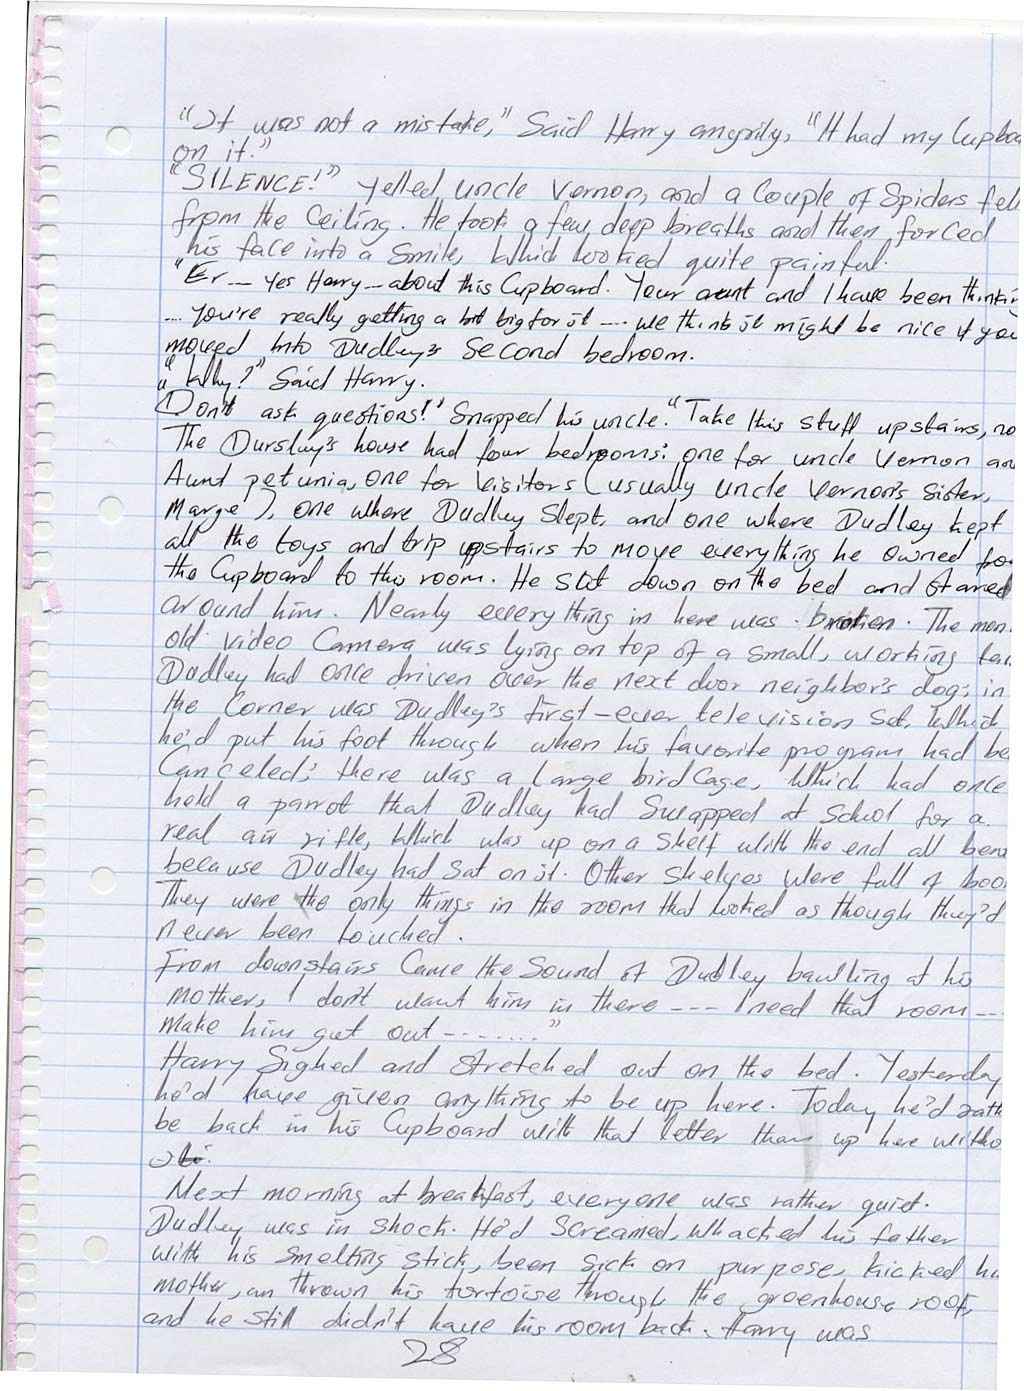 "It was not a mistake," Said Harry angrily, "It had my Cupboa
on it."
"SILENCE!" yelled uncle Vernon, and a Couple of Spiders fell
from the Ceiling. He took a few deep breaths and then forced
his face into a Smile, Which looked quite painful.
"Er -- Yes Harry - about this Cupboard. Your aunt and I have been thinkin
.... You're really getting a bit big for it .... we think it might be nice if you
moved into Dudley's Second bedroom.
"Why?" Said Harry.
"Don't ask questions!" Snapped his uncle. "Take this stuff upstairs, no
The Dursley's house had four bedrooms: one for uncle Vernon an
Aunt petunia, one for Visitors (usually uncle Vernon's Sister,
Marge), one where Dudley Slept, and one where Dudley kept
all the toys and trip upstairs to move everything he owned fro
the Cupboard to this room. He sat down on the bed and Stared
around him. Nearly everything in here was broken. The mon
old video Camera was lying on top of a small, working tan
Dudley had once driven over the next door neighbor's dog; in
the Corner was Dudley's first-ever television Set, Which
he'd put his foot through when his favorite program had be
Canceled; there was a large bird Cage, Which had once
held a parrot that Dudley had Swapped at School for a
real air rifle, Which was up on a Shelf with the end all ben
because Dudley had Sat on it. Other Shelves Were full of boo
They were the only things in the room that looked as though they'd
never been touched.
From downstairs Came the Sound of Dudley bawling at his
mother, I don't want him in there --- I need that room ---
Make him get out -......"
Harry Sighed and Stretched out on the bed. Yesterday
he'd have given anything to be up here. Today he'd rath
be back in his Cupboard with that letter than up here witho
Next morning at breakfast, everyone was rather quiet.
Dudley was in Shock. He'd Screamed, whacked his father
with his Smelting Stick, been Sick on purpose, kicked hi
mother, an thrown his tortoise through the greenhouse roof,
and he Still didn't have his room back. Harry was
28